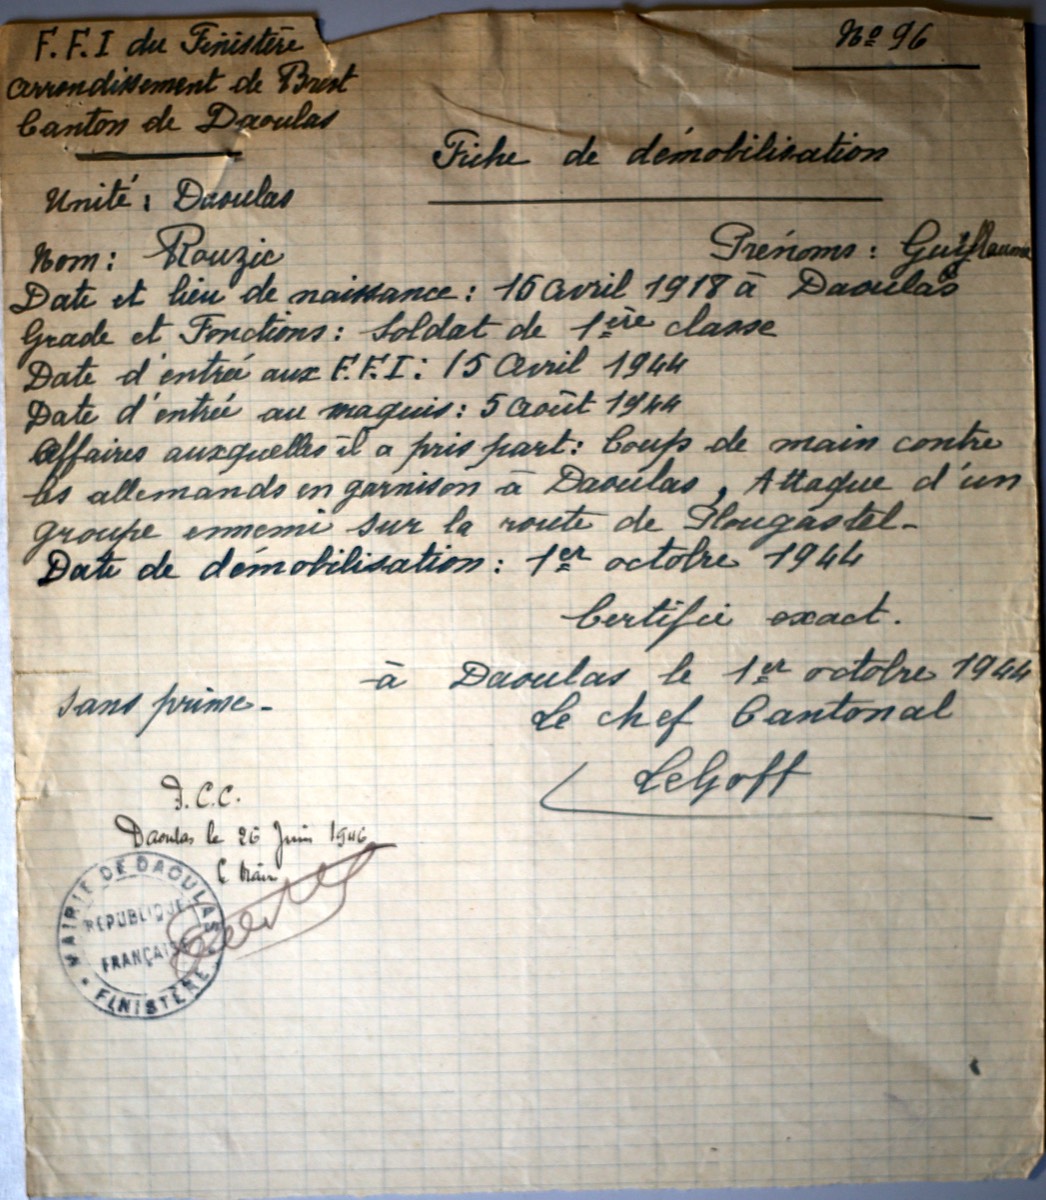 F.F.I du Finistère
arrondissement de Brest
Canton de Daoulas
No 96
Fiche de démobilisation
Unité : Daoulas
Nom : Rouzic Prénoms : Guillaume
Date et lieu de naissance : 16 avril 1918 à Daoulas
Grade et Fonctions : Soldat de 1ère classe
Date d'entrée aux F.F.I : 15 Avril 1944
Date d'entrée au maquis : 5 Août 1944
Affaires auxquelles il a pris part : Coups de main contre
les allemands en garnison à Daoulas, Attaque d'un
groupe ennemi sur la route de Plougastel -
Date de démobilisation : 1er octobre 1944
Certifié exact.
à Daoulas le 1er octobre 1944
sans prime -
Le chef Cantonal
LeGoff
P.C.C.
Daoulas le 26 Juin 1946
Le Maire
MAIRIE DE DAOULAS
RÉPUBLIQUE
FRANÇAISE
FINISTÈRE